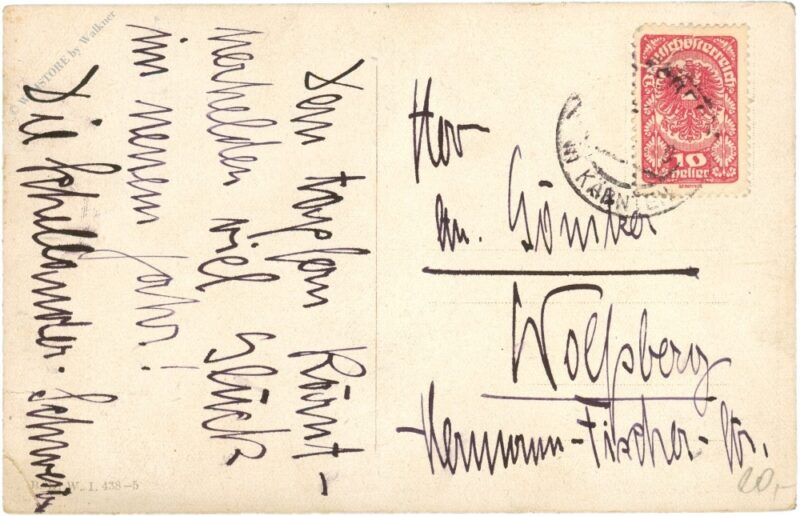 Dem tapfern Kärnt-
nerhelden viel Glück
im neuen Jahr!
Die Schellander-Schwest
Herr
Wolfsberg
Hermann-Fischer-Str.
Deutschösterreich
10
Heller
KÄRNTEN
© W STORE by Walkner
W. I. 438-5
20,-